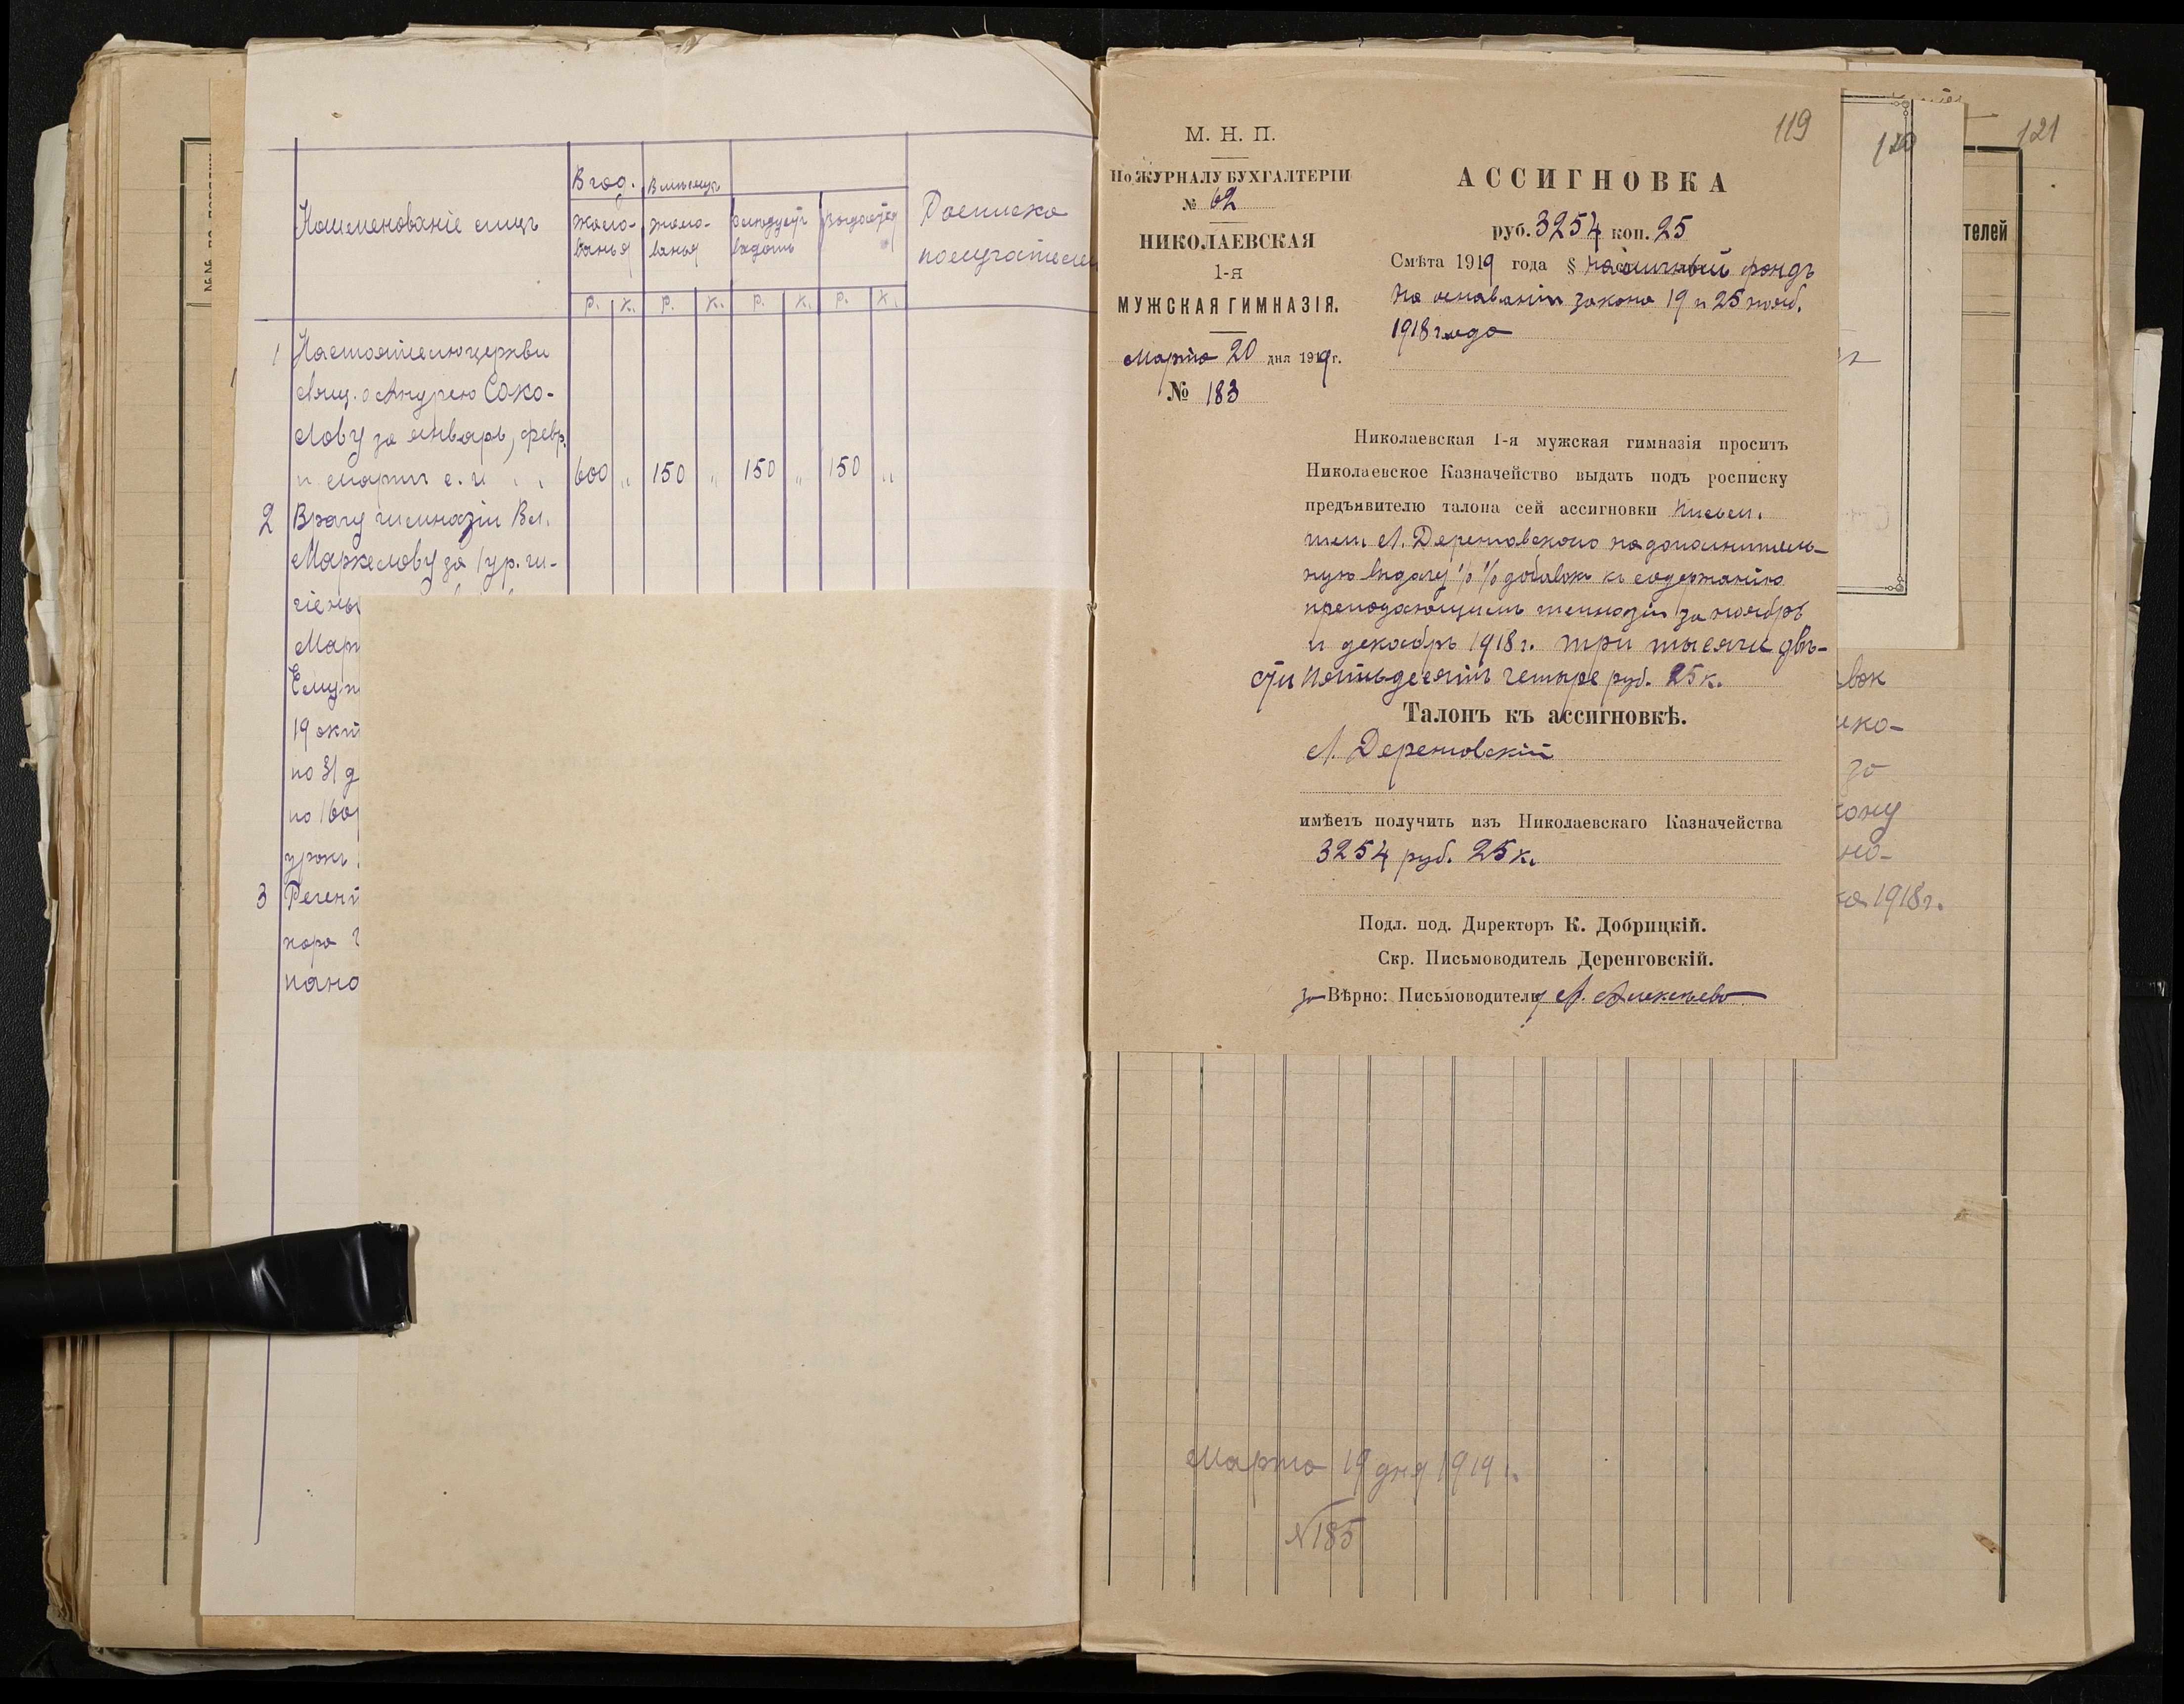 Наименованіе лицъ
В год.
В мѣсяцъ
жало-
ванья
жало-
ванья
Слѣдуетъ
выдать
Выдается
Росписка
получателей
р. к. р. к. р. к. р. к.
1 Настоятелю церкви
свящ. о Андрею Соко-
лову за январь, февр.
и мартъ с. г. 600 " 150 " 150 " 150 "
2 Врачу гимназіи Вл.
Маркелову за 1 ур. ги-
гіены
Март
Ему
19 окт
по 31 д
по 160
урокъ
3 Регент
хора
пано
119
М. Н. П.
По ЖУРНАЛУ БУХГАЛТЕРІИ
№ 62
НИКОЛАЕВСКАЯ
1-я
МУЖСКАЯ ГИМНАЗІЯ.
Марта 20 дня 1919 г.
№ 183
АССИГНОВКА
руб. 3254 коп. 25
Смѣта 1919 года § наличный фондъ
На основаніи закона 19 и 25 нояб.
1918 года
Николаевская 1-я мужская гимназія проситъ
Николаевское Казначейство выдать подъ росписку
предъявителю талона сей ассигновки письм.
гим. Л. Деренговскаго на дополнитель-
ную выдачу %% добавокъ къ содержанію
преподающимъ гимназіи за ноябрь
и декабрь 1918 г. три тысячи двѣ-
сти пятьдесятъ четыре руб. 25 к.
Талонъ къ ассигновкѣ.
Л. Деренговскій
имѣетъ получить изъ Николаевскаго Казначейства
3254 руб. 25 к.
Подл. под. Директоръ К. Добрицкій.
Скр. Письмоводитель Деренговскій.
за Вѣрно: Письмоводителя Л. Алексѣева
120
121
телей
вок
ико-
за
кону
но-
1918 г.
Марта 19 дня 1919 г.
№ 185